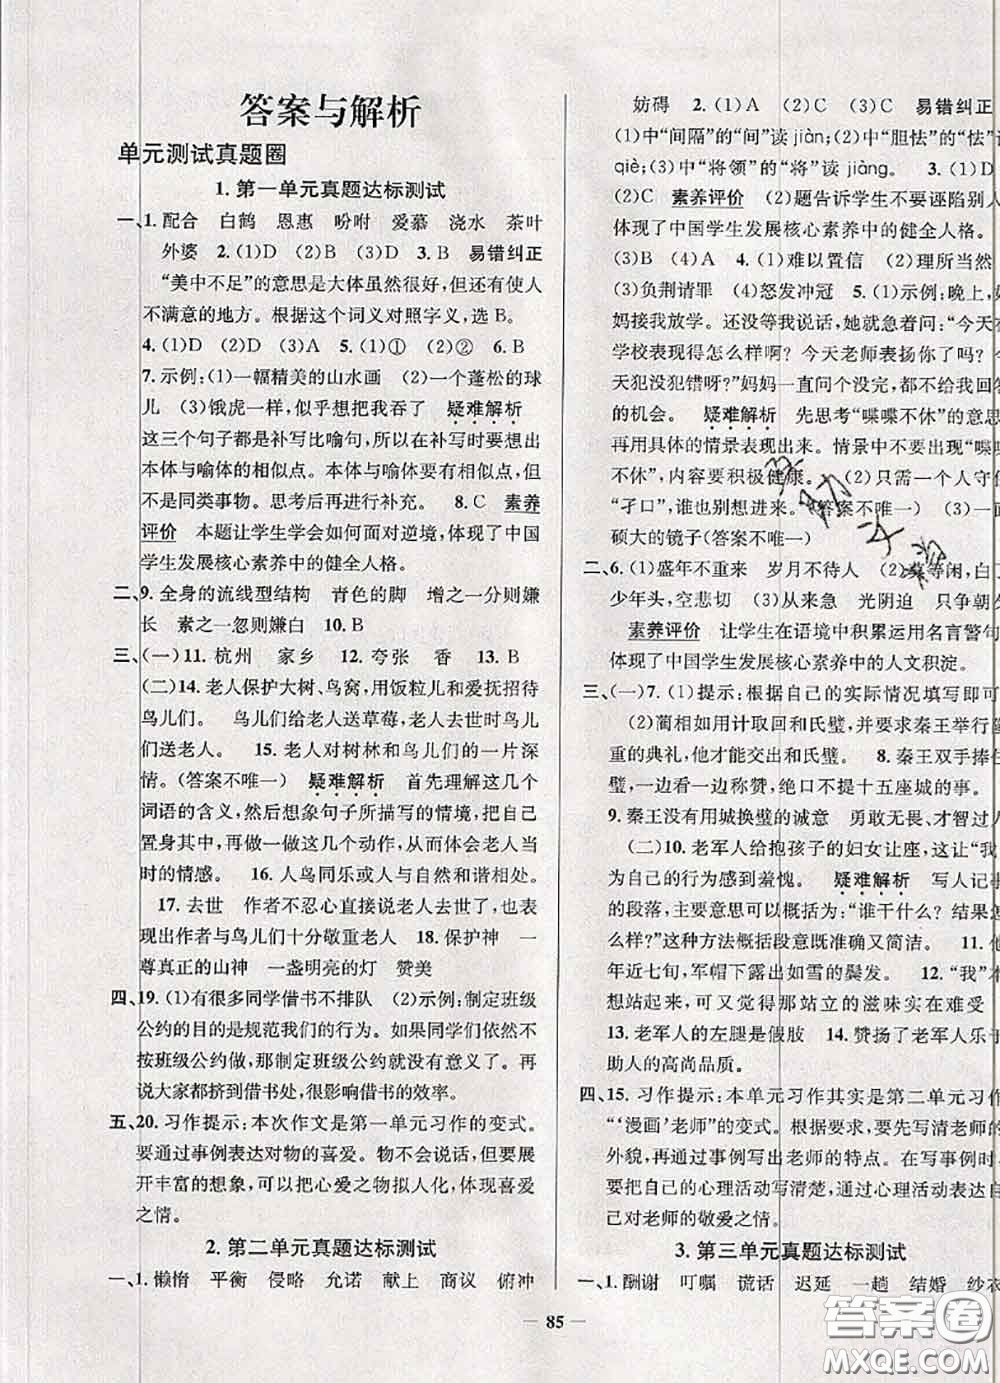 答案与解析
单元测试真题圈
1. 第一单元真题达标测试
一、1. 配合 白鹤 恩惠 吩咐 爱慕 浇水 茶叶
外婆 2. (1)D (2)B (3)D 3. B 易错纠正
“美中不足”的意思是大体虽然很好,但还有使人
不满意的地方。根据这个词义对照字义,选 B。
4. (1)D (2)D (3)A 5. (1)① (2)② 6. B
7. 示例:(1)一幅精美的山水画 (2)一个蓬松的球
儿 (3)饿虎一样,似乎想将我吞了 疑难解析
这三个句子都是补写比喻句,所以在补写时要想出
本体与喻体的相似点。本体与喻体要有相似点,但
不是同类事物。思考后再进行补充。 8. C 素养
评价 本题让学生学会如何面对逆境,体现了中国
学生发展核心素养中的健全人格。
二、9. 全身的流线型结构 青色的脚 增之一分则嫌
长 素之一忽则嫌白 10. B
三、(一)11. 杭州 家乡 12. 夸张 香 13. B
(二)14. 老人保护大树、鸟窝,用饭粒儿和爱抚招待
鸟儿们。 鸟儿们给老人送草莓,老人去世时鸟儿
们送老人。 15. 老人对树林和鸟儿们的一片深
情。(答案不唯一) 疑难解析 首先理解这几个
词语的含义,然后想象句子所描写的情境,把自己
置身其中,用心感受这几个动作,体会老人当
时的情感。 16. 人鸟同乐或人与自然和谐相处。
17. 去世 作者不忍心直接说老人去世了,也表
现出作者与鸟儿们十分敬重老人 18. 保护神 一
尊真正的山神 一盏明亮的灯 赞美
四、19. (1)有很多同学借书不排队 (2)示例:制定班级
公约的目的是规范我们的行为。如果同学们依然不
按班级公约做,那制定班级公约就没有意义了。再
说大家都挤到借书处,很影响借书的效率。
五、20. 习作提示:本次作文是第一单元习作的变式。
要通过事例表达对物的喜爱。物不会说话,但要展
开丰富的想象,可以把心爱之物拟人化,体现喜爱
之情。
2. 第二单元真题达标测试
一、1. 懒惰 平衡 侵略 允诺 献上 商议 俯冲
妨碍 2. (1)A (2)C (3)C 易错纠正
(1)中“间隔”的“间”读 jiàn;(2)中“胆怯”的“怯”读
qiè;(3)中“将领”的“将”读 jiàng。 3. (1)D
(2)C 素养评价 (2)题告诉学生不要诬陷别人
体现了中国学生发展核心素养中的健全人格。
(3)B (4)A 4. (1)难以置信 (2)理所当然
(3)负荆请罪 (4)怒发冲冠 5. (1)示例:晚上,妈
妈接我放学。还没等我说话,她就急着问:“今天在
学校表现得怎么样啊?今天老师表扬你了吗?今
天犯没犯错呀?”妈妈一直问个没完,却不给我回答
的机会。 疑难解析 先思考“喋喋不休”的意思
再用具体的情景表现出来。情景中要表现“喋喋
不休”,内容要积极健康。 (2)只需一个人守住
“孑口”,谁也别想进来。(答案不唯一) (3)一面
硕大的镜子(答案不唯一)
二、6. (1)盛年不重来 岁月不待人 (2)莫等闲,白了
少年头,空悲切 (3)从来急 光阴迫 只争朝夕
素养评价 让学生在语境中积累运用名言警句
体现了中国学生发展核心素养中的人文积淀。
三、(一)7. (1)提示:根据自己的实际情况填写即可
(2)蔺相如用计取回和氏璧,并要求秦王举行隆
重的典礼,他才能交出和氏璧。 8. 秦王双手捧住
璧,一边看一边称赞,绝口不提十五座城的事。
9. 秦王没有用城换璧的诚意 勇敢无畏、才智过人
(二)10. 老军人给抱孩子的妇女让座,这让“我”
为自己的行为感到羞愧。 疑难解析 写人记事
的段落,主要意思可以概括为:“谁干什么?结果怎
么样?”这种方法概括段意既准确又简洁。 11. 他
年近七旬,军帽下露出如雪的鬓发。 12. “我”本
想站起来,可又觉得那站立的滋味实在难受
13. 老军人的左腿是假肢 14. 赞扬了老军人乐于
助人的高尚品质。
四、15. 习作提示:本单元习作其实是第二单元习作
“‘漫画’老师”的变式。根据要求,要先写清老师的
外貌,再通过事例写出老师的特点。在写事例时,
要把自己的心理活动写清楚,通过心理活动表达自
己对老师的敬爱之情。
3. 第三单元真题达标测试
一、1. 酬谢 叮嘱 谎话 迟延 一趟 结婚 纱衣
— 85 —
答案圈
MXQE.COM